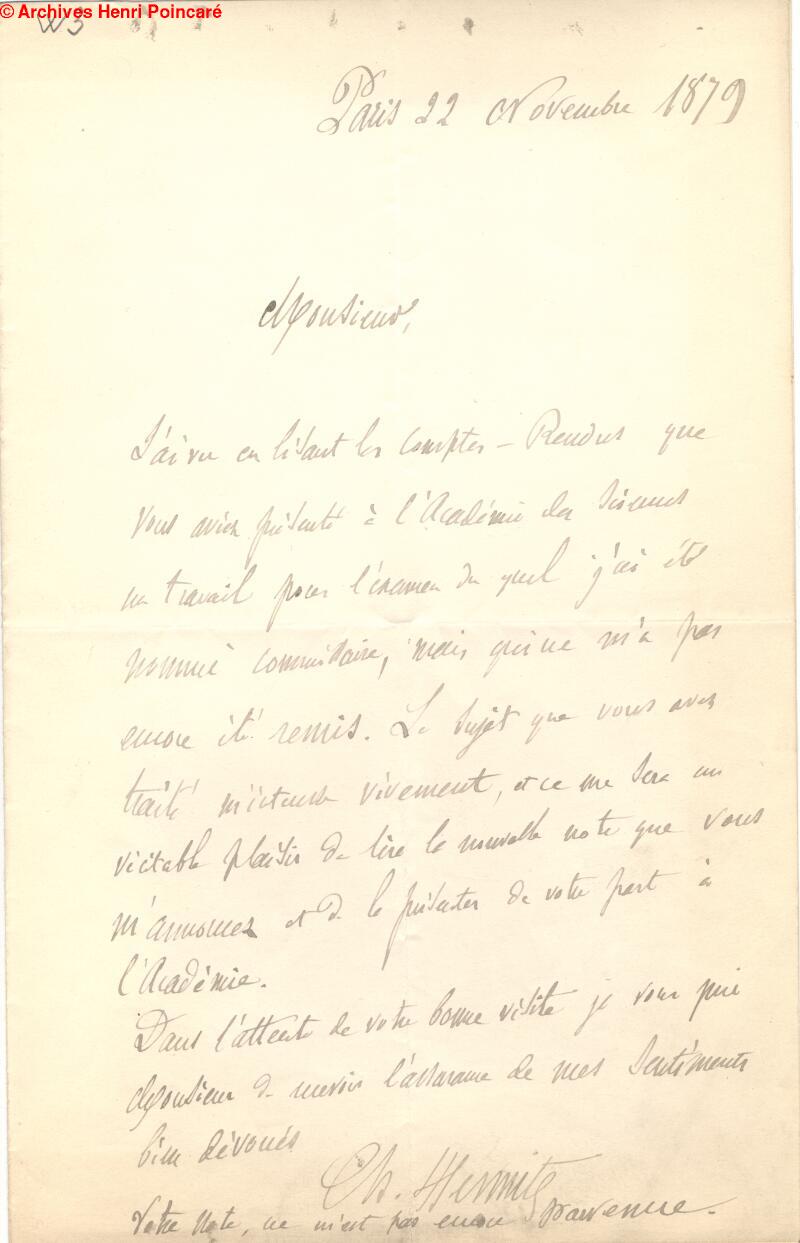 © Archives Henri Poincaré
W3
Paris 22 Novembre 1879
Monsieur,
J'ai vu en lisant les Comptes-Rendus que
vous aviez présenté à l'Académie des Sciences
un travail pour l'examen du quel j'ai été
nommé commissaire, mais qui ne m'a pas
encore été remis. Le sujet que vous avez
traité m'intéresse vivement, et ce me sera un
véritable plaisir de lire la nouvelle note que vous
m'annoncez et de la présenter de votre part à
l'Académie.
Dans l'attente de votre bonne visite je vous prie
Monsieur de recevoir l'assurance de mes sentiments
bien dévoués
Ch. Hermite
Votre note, ne m'est pas encore parvenue.